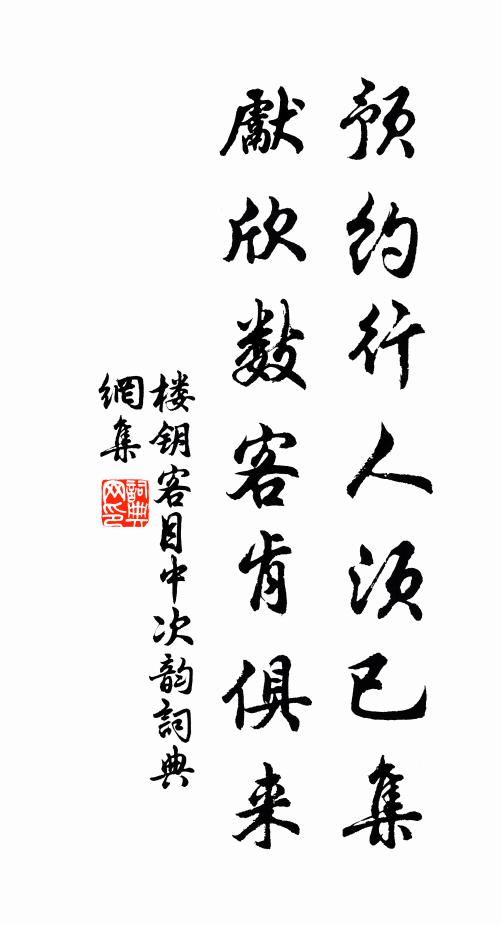 预约行人须已集
献欣数客肯俱来
楼钥客目中次韵词典
網集
詞典網印